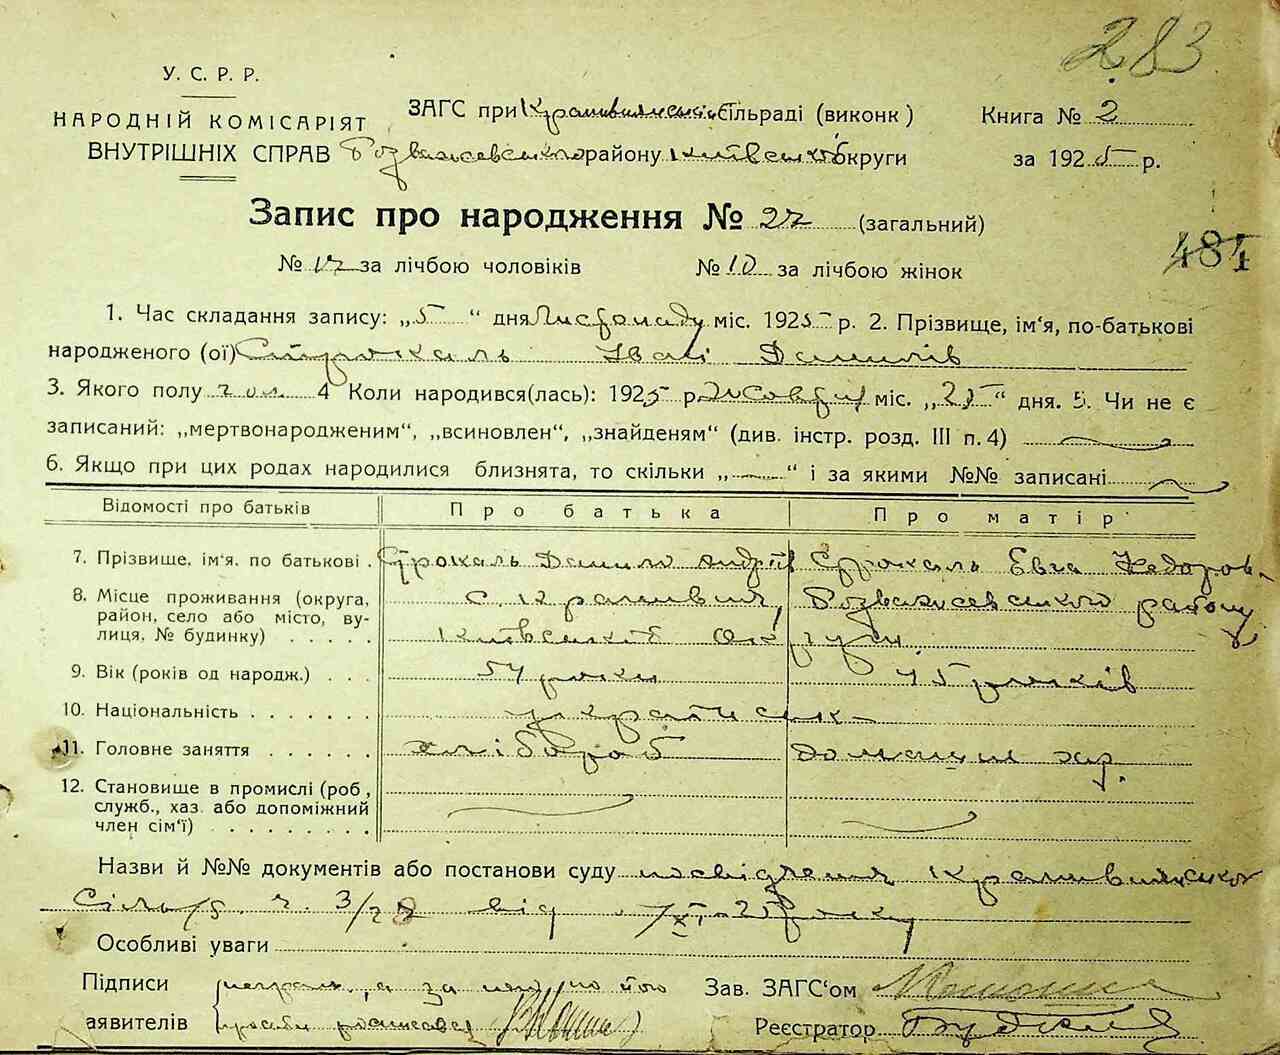 283
У. С. Р. Р.
НАРОДНІЙ КОМІСАРІЯТ
ВНУТРІШНІХ СПРАВ
ЗАГС при Крапивнянській Сільраді (виконк)
Розважевського району Київської округи
Книга № 2
за 1925 р.
Запис про народження № 27 (загальний)
484
№ 17 за лічбою чоловіків № 10 за лічбою жінок
1. Час складання запису: „5“ дня Листопаду міс. 1925 р. 2. Прізвище, ім'я, по-батькові
народженого (ої) Строкаль Іван Данилів
3. Якого полу чол. 4 Коли народився(лась): 1925 р. Жовтня міс. „25“ дня. 5. Чи не є
записаний: „мертвонародженим“, „всиновлен“, „знайденям“ (див. інстр. розд. III п. 4)
6. Якщо при цих родах народилися близнята, то скільки „ “ і за якими №№ записані
Відомості про батьків Про батька Про матір
7. Прізвище, ім'я, по батькові . Строкаль Данило Андріїв Строкаль Евга Федоров-
8. Місце проживання (округа, район, село або місто, вулиця, № будинку) . . . . .
с. Крапивня, Розважевського району
Київської Округи
9. Вік (років од народж.) . . . 54 роки 45 років
10. Національність . . . . . . . українськ-
11. Головне заняття . . . . . . хлібороб домашн. хаз.
12. Становище в промислі (роб, служб., хаз. або допоміжний член сім'ї) . . . . . . . .
Назви й №№ документів або постанови суду посвідчення Крапивнянської
Сіль/р. ч. 3/28 від /XI-25 року
Особливі уваги
Підписи неграм., а за його по його Зав. ЗАГС'ом
аявителів прозьби росписався Реєстратор